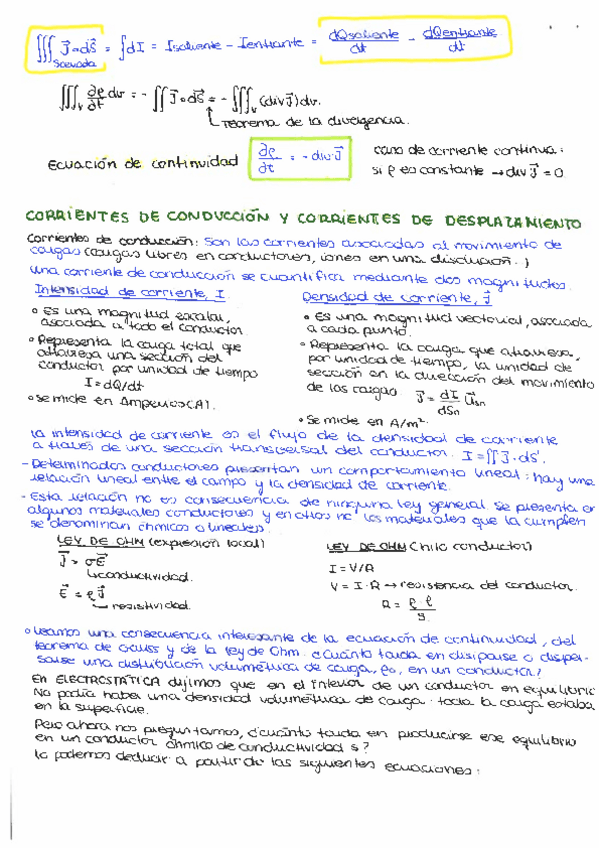 ∭ J⃗∘dS⃗ = ∫dI = Isaliente − Ientrante = dQsaliente/dt − dQentrante/dt
S cerrada
∭v ∂ρ/∂t dv = − ∬ J⃗∘dS⃗ = − ∭v (div J⃗) dv.
Teorema de la divergencia.
Ecuación de continuidad ∂ρ/∂t = − div J⃗
caso de corriente continua:
si ρ es constante → div J⃗ = 0
CORRIENTES DE CONDUCCIÓN Y CORRIENTES DE DESPLAZAMIENTO
Corrientes de conducción: Son las corrientes asociadas al movimiento de
cargas (cargas libres en conductores, iones en una disolución.)
Una corriente de conducción se cuantifica mediante dos magnitudes.
Intensidad de corriente, I
∘ Es una magnitud escalar,
asociada a todo el conductor.
∘ Representa la carga total que
atraviesa una sección del
conductor por unidad de tiempo
I = dQ/dt
∘ Se mide en Amperios (A).
Densidad de corriente, J⃗
∘ Es una magnitud vectorial, asociada
a cada punto.
∘ Representa la carga que atraviesa,
por unidad de tiempo, la unidad de
sección en la dirección del movimiento
de las cargas. J⃗ = dI/dSn u⃗sn
∘ Se mide en A/m².
La intensidad de corriente es el flujo de la densidad de corriente
a través de una sección transversal del conductor. I = ∬ J⃗·dS⃗.
- Determinados conductores presentan un comportamiento lineal: hay una
relación lineal entre el campo y la densidad de corriente.
- Esta relación no es consecuencia de ninguna ley general. se presenta en
algunos materiales conductores y en otros no. Los materiales que la cumplen
se denominan óhmicos o lineales.
LEY DE OHM (expresión local)
J⃗ = σE⃗
conductividad.
E⃗ = ρJ⃗
resistividad.
LEY DE OHM (hilo conductor)
I = V/R
V = I·R → resistencia del conductor.
R = ρ·ℓ/S.
∘ Veamos una consecuencia interesante de la ecuación de continuidad, del
teorema de Gauss y de la ley de Ohm. ¿Cuánto tarda en disiparse o disper-
sarse una distribución volumétrica de carga, ρo, en un conductor?
En ELECTROSTÁTICA dijimos que en el interior de un conductor en equilibrio
No podía haber una densidad volumétrica de carga: toda la carga estaba
en la superficie.
Pero ahora nos preguntamos, ¿cuánto tarda en producirse ese equilibrio
en un conductor óhmico de conductividad s?
lo podemos deducir a partir de las siguientes ecuaciones: